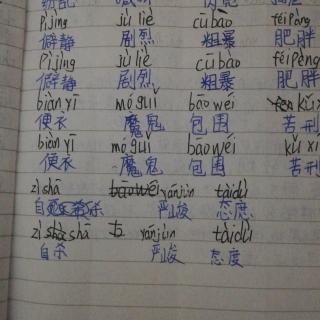 pìjìng jùliè cūbào féipàng
僻静 剧烈 粗暴 肥胖
pìjìng jùliè cūbào féipàng
僻静 剧烈 粗暴 肥胖
biànyī móguǐ bāowéi kǔxí
便衣 魔鬼 包围 苦刑
biànyī móguǐ bāowéi kǔxí
便衣 魔鬼 包围 苦刑
zìshā yánjùn tàidù
自杀 严峻 态度
zìshā yánjùn tàidù
自杀 严峻 态度